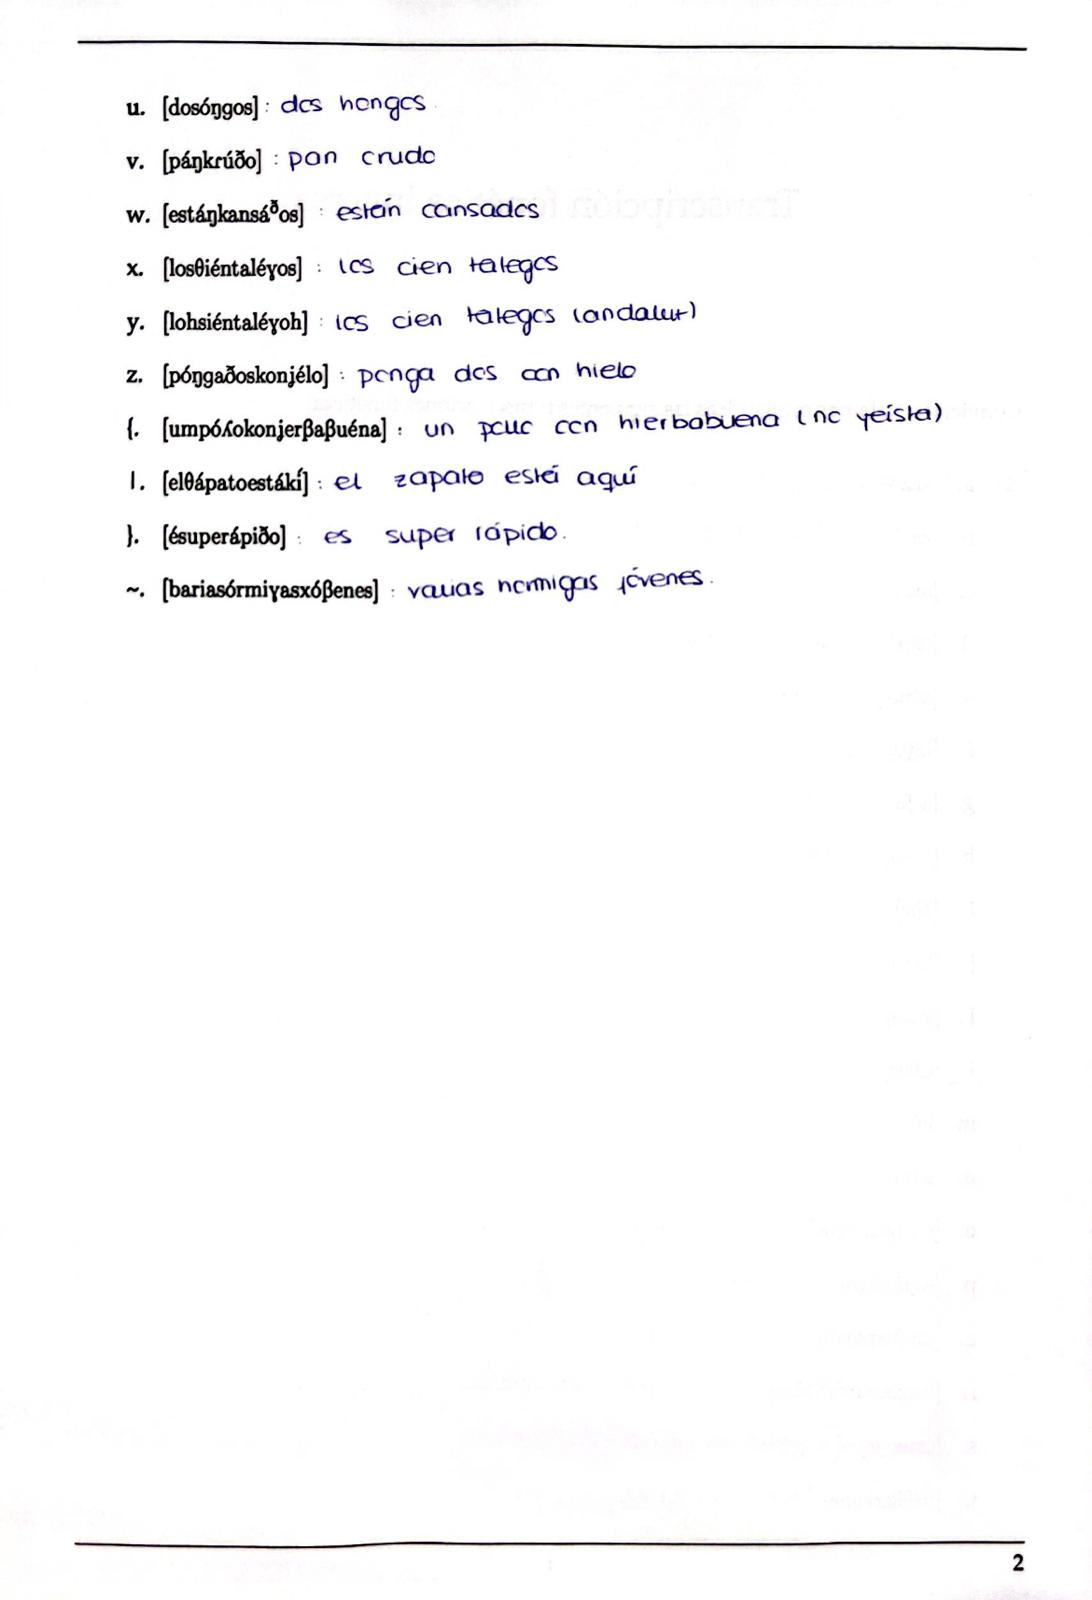 u. [dosóŋgos] : dos hongos.
v. [páŋkrúðo] : pan crudo
w. [estáŋkansáᶞos] : están cansados
x. [losθiéntaléɣos] : los cien talegos
y. [lohsiéntaléɣoh] : los cien talegos (andaluz)
z. [póŋgaðoskonjélo] : ponga dos con hielo
{. [umpóʎokonjerβaβuéna] : un pollo con hierbabuena (no yeísta)
|. [elθápatoestákí] : el zapato está aquí
}. [ésuperápiðo] : es super rápido.
~. [bariasórmiɣasxóβenes] : varias hormigas jóvenes.
2